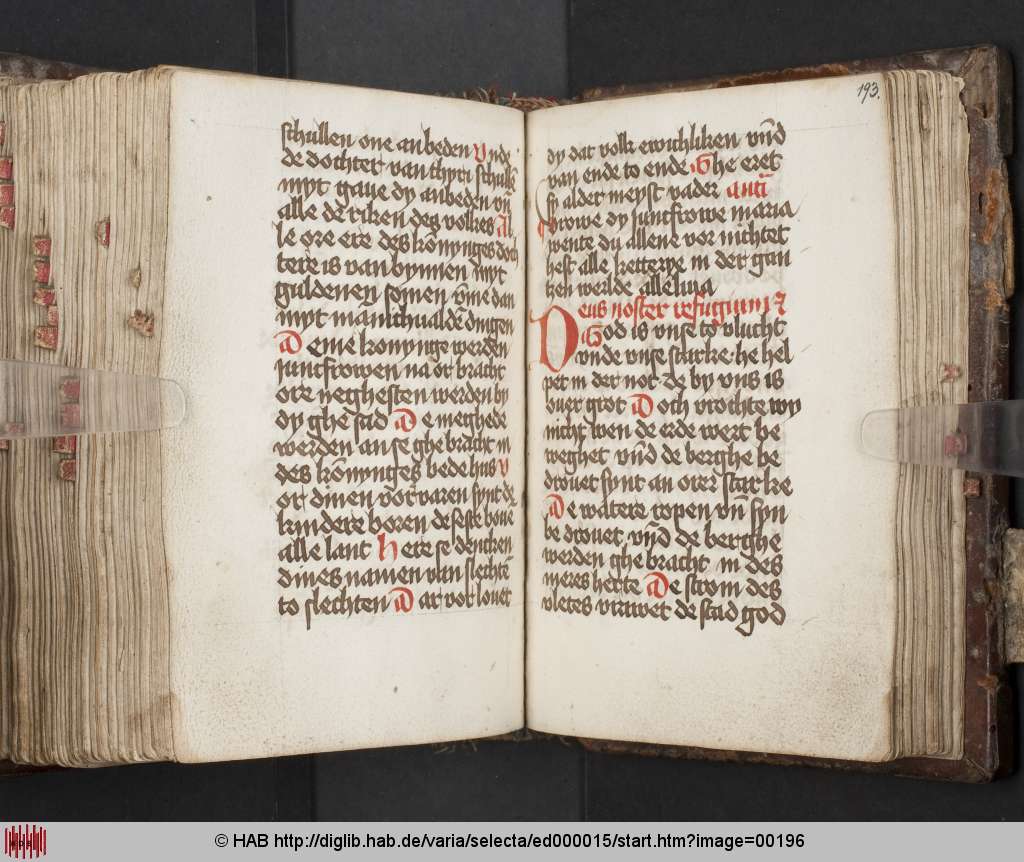 schullen one anbeden Vnde
de dochter van thyri schullē
myt gaue dy anbeden vn̄
alle de riken des volkes Al
le ore ere des kōnynges doch
tere is van bynnen myt
guldenen somen vmme dan
myt manichualdē dingen
De deme konynge werden
juncfrowen na or bracht
ore neghesten werden by
dy ghe had De meghede
werden an se ghe bracht in
des kōnynges bede hus V
or dinen vor varen synt dy
kindere boren de seste boue
alle lant Here se dencken
dines namen van slechtē
to slechten Dar vor louet
193.
dy dat volk ewichliken vn̄d
van ende to ende Ghe eret
sy alder meyst vader anti
vrowe dy juncfrowe maria
wente du allene vor nichtet
hest alle ketterye in der gan
ken werlde alleluia
Deus noster refugium &
God is vnse to vlucht
vnde vnse starke he hel
pet in der not de by vns is
ouer grot Doch vrochte wy
nicht wen de erde wert be
weghet vn̄d de berghe be
drouet synt an orer starke
De watere ropen vn̄ syn
be drouet vn̄d de berghe
werden ghe bracht in des
meres herte De strom des
vletes vrawet de stad god
© HAB http://diglib.hab.de/varia/selecta/ed000015/start.htm?image=00196